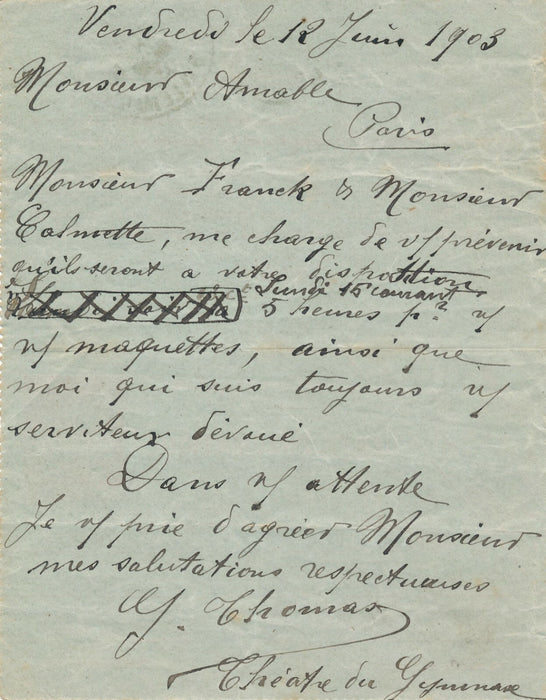 Vendredi le 12 Juin 1903
Monsieur Amable
Paris
Monsieur Franck & Monsieur
Calmette, me charge de vs prévenir
qu'ils seront a votre disposition
Lundi 15 courant
5 heures pr vr
vs maquettes, ainsi que
moi qui suis toujours vs
serviteur dévoué
Dans vs attente
Je vs prie d'agréer Monsieur
mes salutations respectueuses
Thomas
Théatre du Gymnase